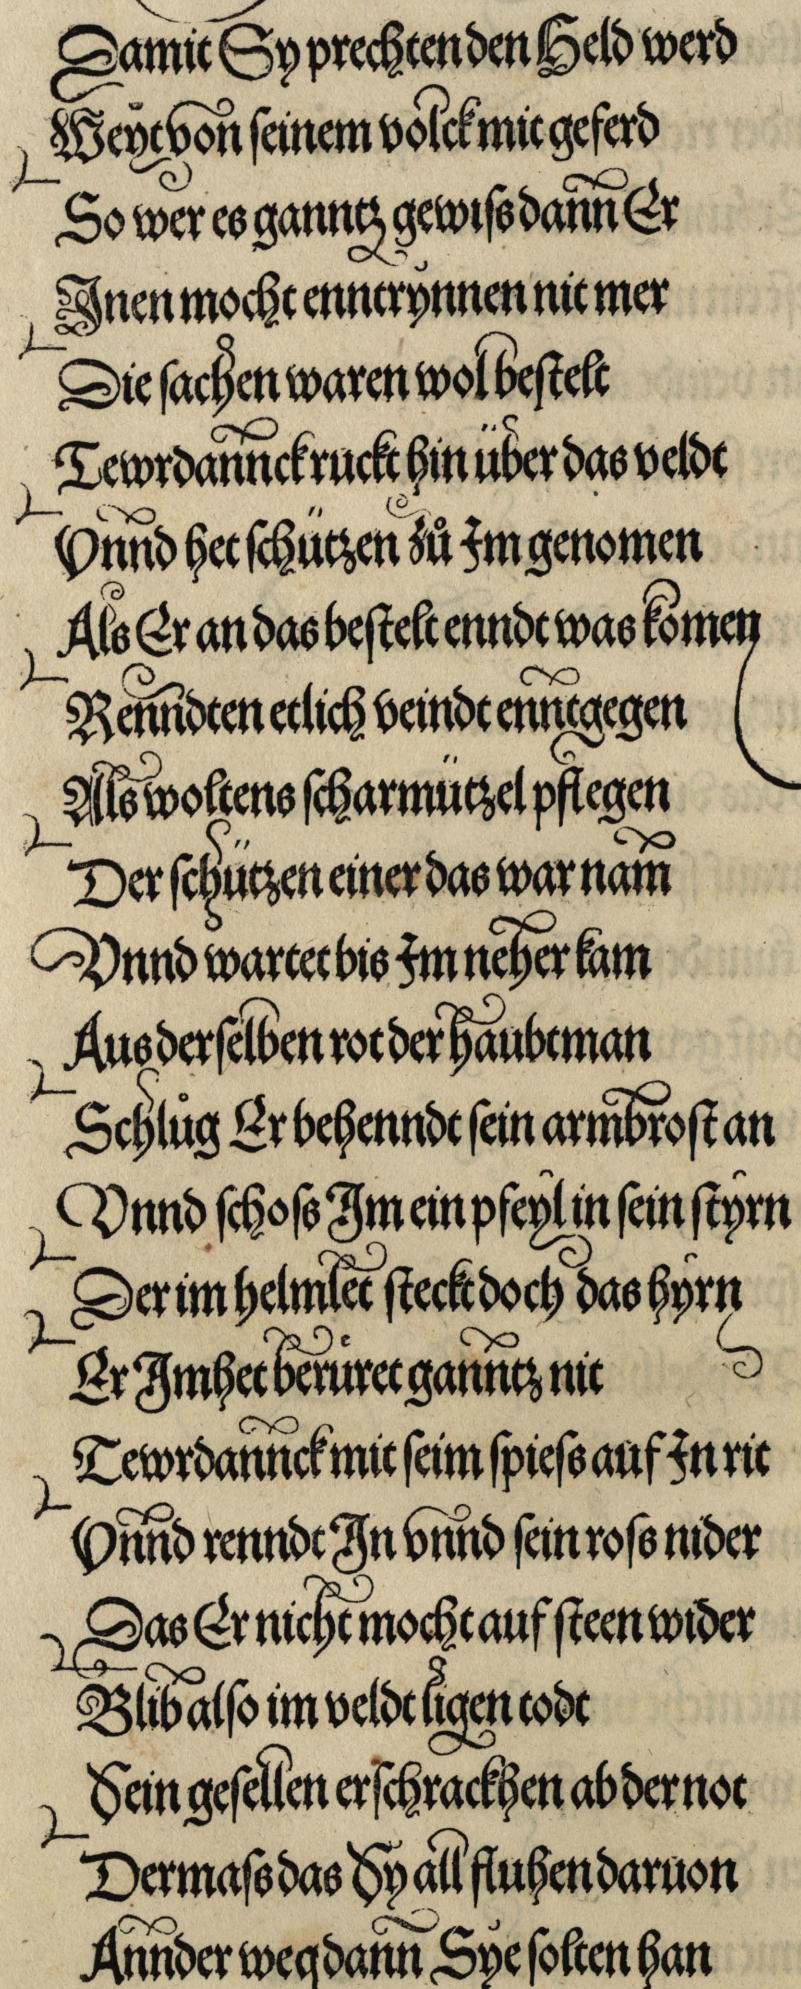 Damit Sy prechten den Held werd
Weyt von seinem volck mit geferd
So wer es ganntz gewiſs dann Er
Jnen mocht enntrynnen nit mer
Die sachen waren wol beſtelt
Tewrdannck ruckt hin über das veldt
Vnnd het ſchützen zů Jm genomen
Als Er an das beſtelt enndt was komen
Renndten etlich veindt enntgegen
Als woltens ſcharmützel pflegen
Der ſchützen einer das war nam
Vnnd wartet bis Jm neher kam
Aus der ſelben rot der haubtman
Schlůg Er behenndt ſein armbroſt an
Vnnd ſchoſs Jm ein pfeyl in ſein ſtyrn
Der im helmlet ſteckt doch das hyrn
Er Jm het berüret ganntz nit
Tewrdannck mit ſeim ſpieſs auf Jn rit
Vnnd renndt Jn vnnd ſein roſs nider
Das Er nicht mocht auf ſteen wider
Blib alſo im veldt ligen todt
Sein geſellen erſchrackhen ab der not
Dermaſs das Sy all fluhen daruon
Annder weg dann Sye ſolten han